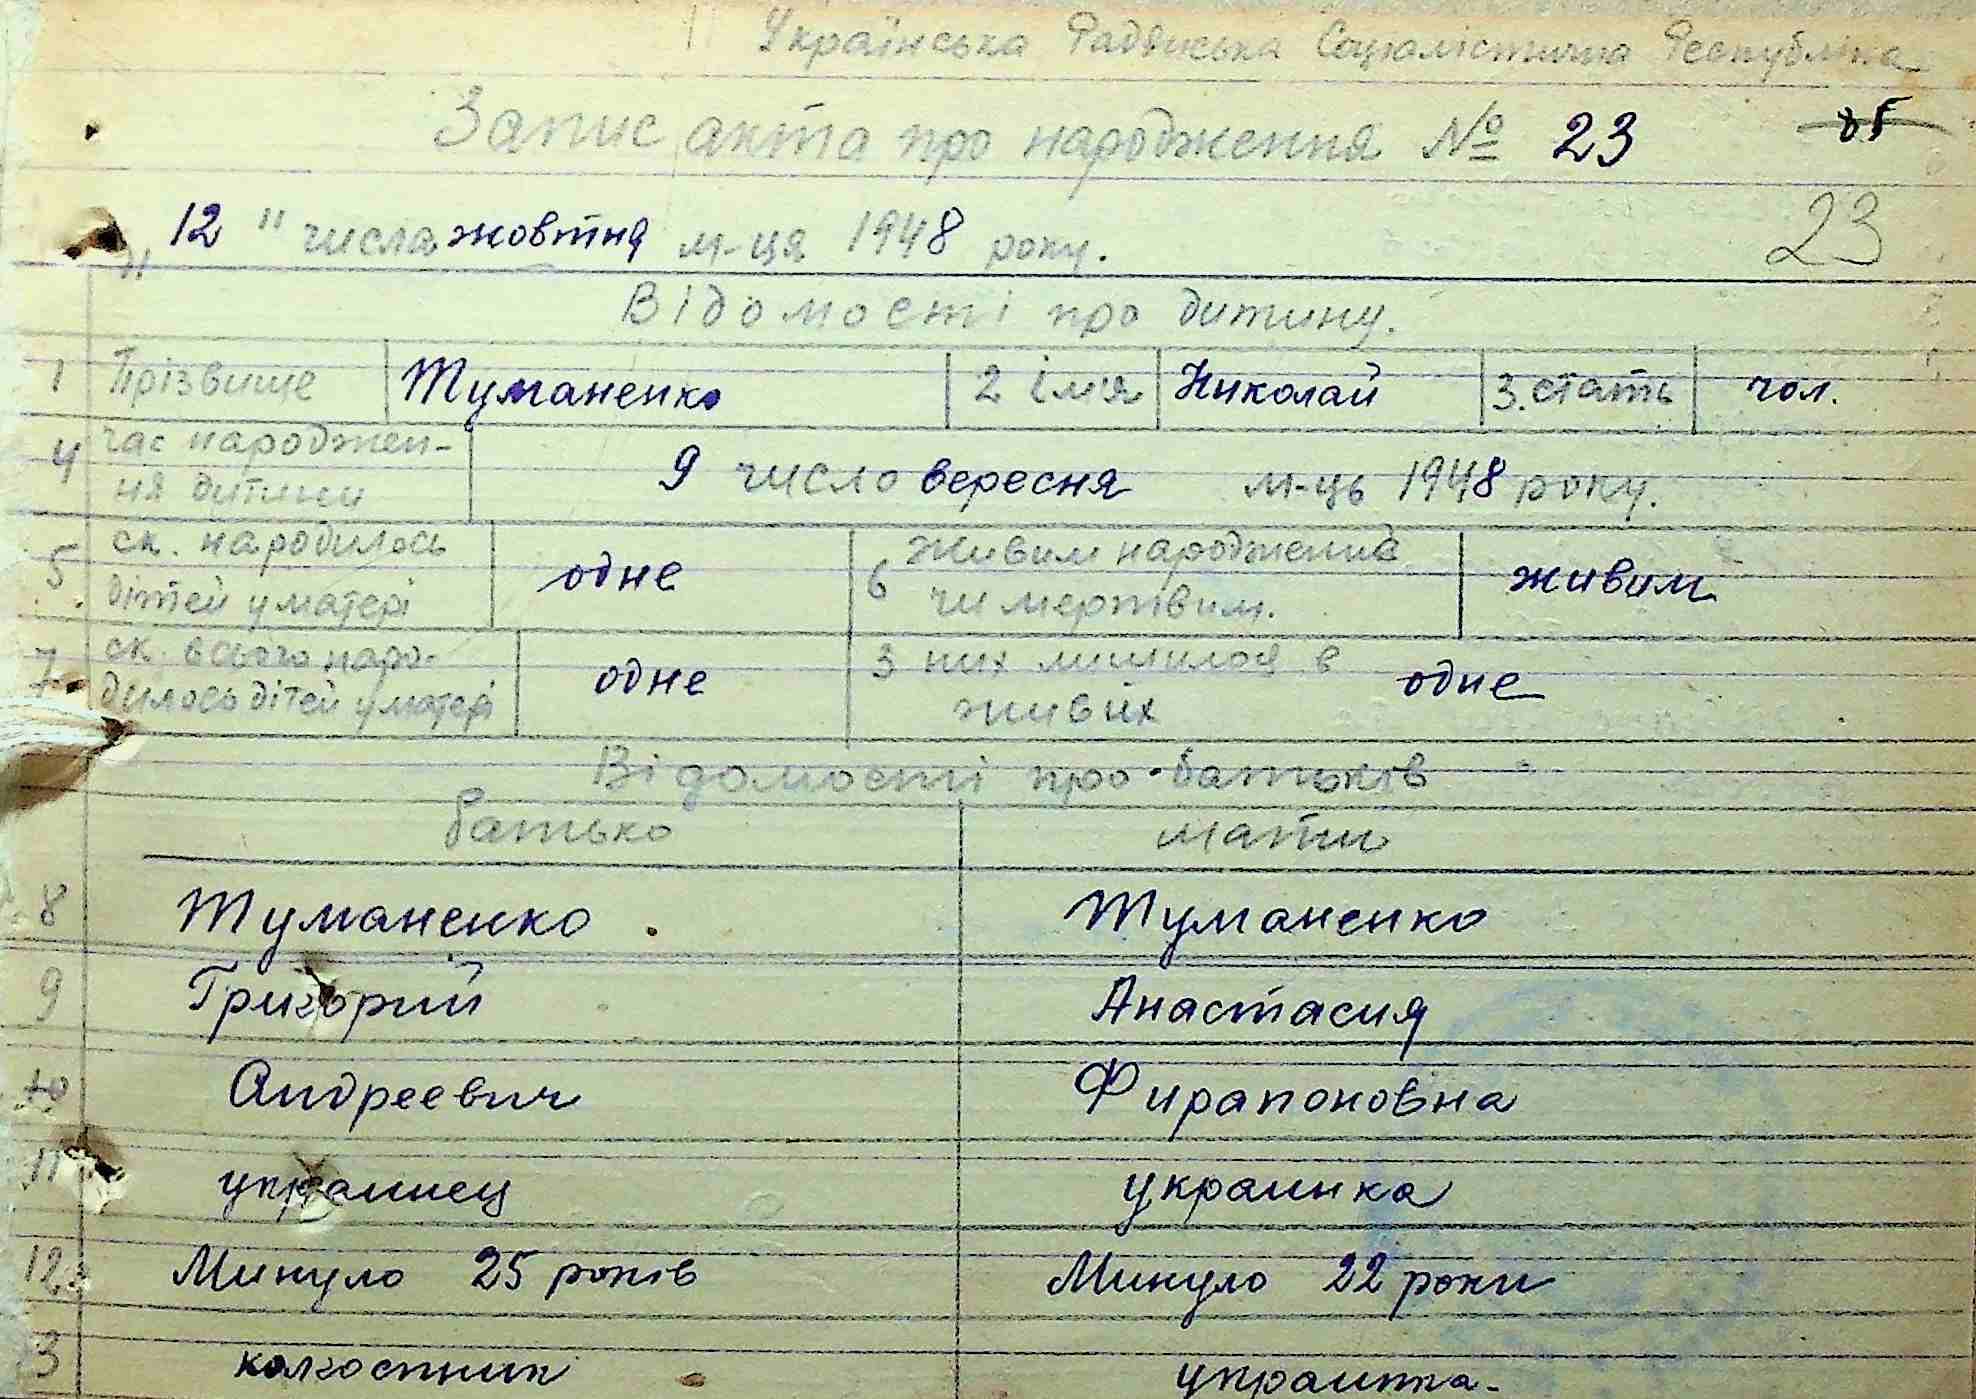 Українська Радянська Соціялістична Республіка
Запис акта про народження № 23
23
" 12 " числа жовтня м-ця 1948 року.
Відомості про дитину.
1 Прізвище Туманенко 2 імя Николай 3. стать чол.
4 час народжен-
ня дитини 9 число вересня м-ць 1948 року.
5 ск. народилось
дітей у матері одне 6 живим народжений
чи мертвим. живим
7 ск. всього наро-
дилось дітей у матері одне З них лишилося в
живих одне
Відомості про батьків
батько мати
8 Туманенко Туманенко
9 Григорий Анастасия
10 Андреевич Фирапоновна
11 украинец украинка
12 Минуло 25 років Минуло 22 роки
13 колгостник украинка.